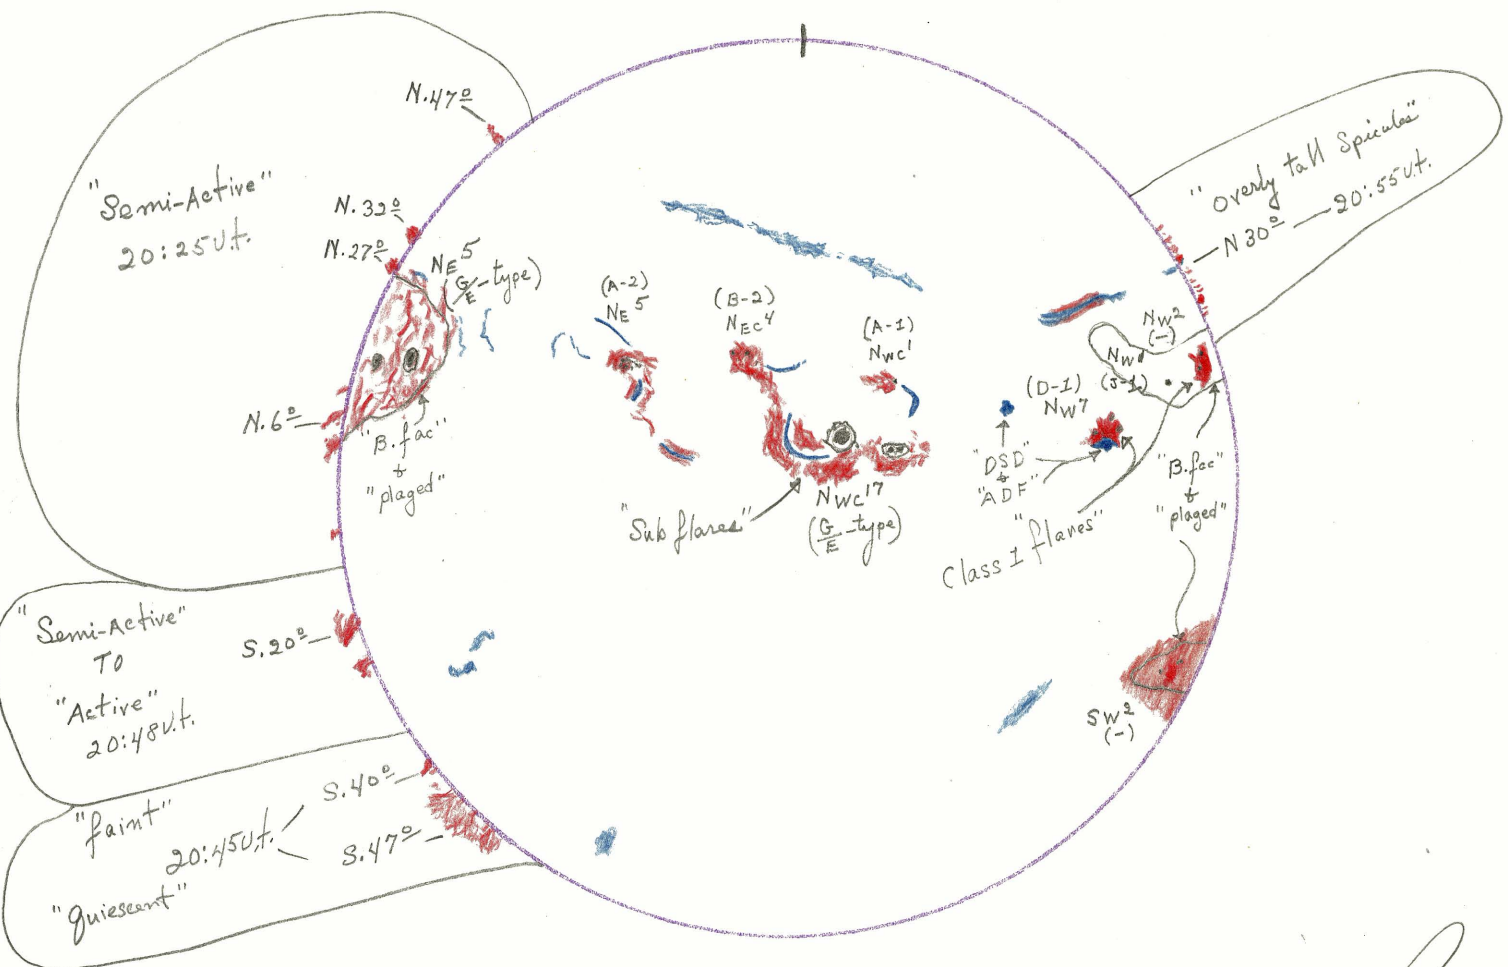 N.47º
"Semi-Active"
20:25 U.t.
N.32º
N.27º
NE5
(G/E-type)
N.6º
"B.fac"
&
"plaged"
(A-2)
NE5
(B-2)
NEC4
(A-1)
NWC1
"Sub flares"
NWC17
(G/E-type)
"overly tall Spicules"
N30º — 20:55 U.t.
NW2
(-)
NW1
(J-1)
(D-1)
NW7
"DSD"
&
"ADF"
Class 1 "flares"
"B.fac"
&
"plaged"
SW2
(-)
"Semi-Active"
TO
"Active"
20:48 U.t.
S.20º
"faint"
20:45 U.t.
S.40º
S.47º
"Quiescent"